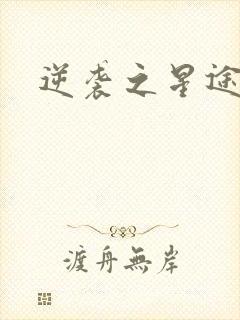 逆袭之星途
渡舟無岸